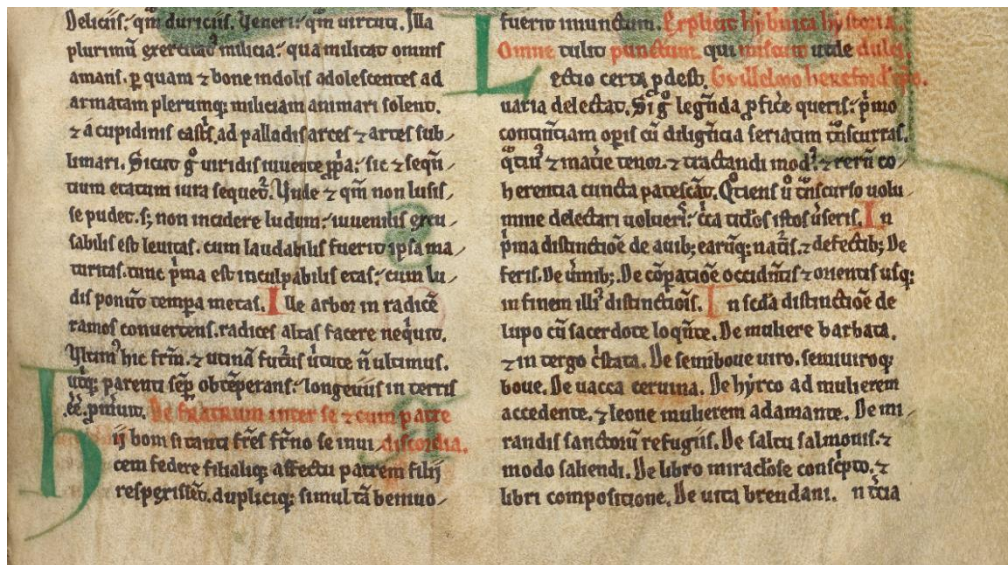 Deliciis: qm̄ duriciis. Veneri: qm̄ uirtuti. Illa
plurimū exercitat᷒ milicia: qua militat omnis
amans. ꝑ quam ⁊ bone indolis adolescentes ad
armatam plerumq; miliciam animari solent.
⁊ a cupidinis castris ad palladis arces ⁊ artes sub/
limari. Sicut gͦ uiridis iuuente ꝓpͥa: sic ⁊ seqn̄/
tium etatum iura sequet᷒. Vnde ⁊ qm̄ non lusis/
se pudet. s; non incidere ludum: iuuenilis excu/
sabilis est leuitas. cum laudabilis fuerit ipsa ma/
turitas. tunc pͥma est inculpabilis etas: cum lu/
dis ponit tempa metas. Ille arbor in radicē
ramos conuertens. radices altas facere neqͥuit.
Vltim᷒ hic frm̄. ⁊ utinā futur᷒ uͥtute n̄ ultimus.
utq; parenti semꝑ obtēperans: longeuus in terris
eē ꝓmiuit. De fratrum inter se ⁊ cum patre
ij bom si tanti fr̄es fr̄no se inui discordia.
cem federe filialiq; affectu patrem filij
respexissēt. dupliciq; simul tā beniuo/
fuerit inunctum. Explicit hybnica hystoria.
Omne tulit punctum qui miscuit utile dulci
Lectio certa ꝓdest. Guillelmo herefordēsi ep̄o.
uaria delectat. Si gͦ legn̄da ꝓficͤe queris: pͥmo
continētiam opis cū dilign̄cia seriatim tn̄scurras.
qͦtin᷒ ⁊ matie tenor. ⁊ tractandi mod᷒. ⁊ rerū co/
herentia cuncta patescāt. Qͦtiens u᷒ tn̄scurso uolu/
mine delectari uolueris: cͥca titlos istos uͥseris. In
pͥma distinctiōe de auib; earūq; natͥs. ⁊ defectib; De
feris. De uͥmib; De cōꝑatiōe occidn̄tis ⁊ orientis usq;
in finem illi᷒ distinctiōis. In scda distinctiōe de
lupo cū sacerdote loqn̄te. De muliere barbata.
⁊ in tergo cͥstata. De semiboue uiro. semiuiroq;
boue. De uacca ceruina. De hyrco ad mulierem
accedente. ⁊ leone mulierem adamante. De mi/
randis sanctorū refugiis. De saltu salmonis. ⁊
modo saliendi. De libro miraclōse conscͥpto. ⁊
libri compositione. De uita brendani. n tcia